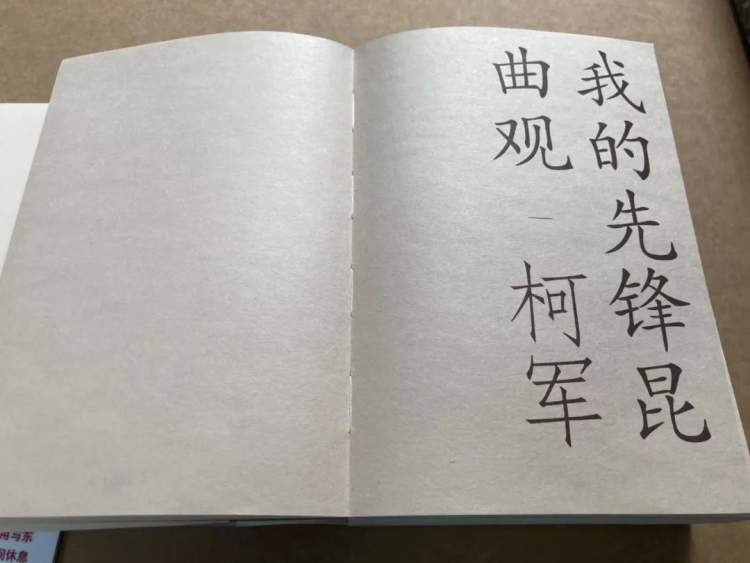 我的先锋昆
曲观
柯军
用与东
间休息